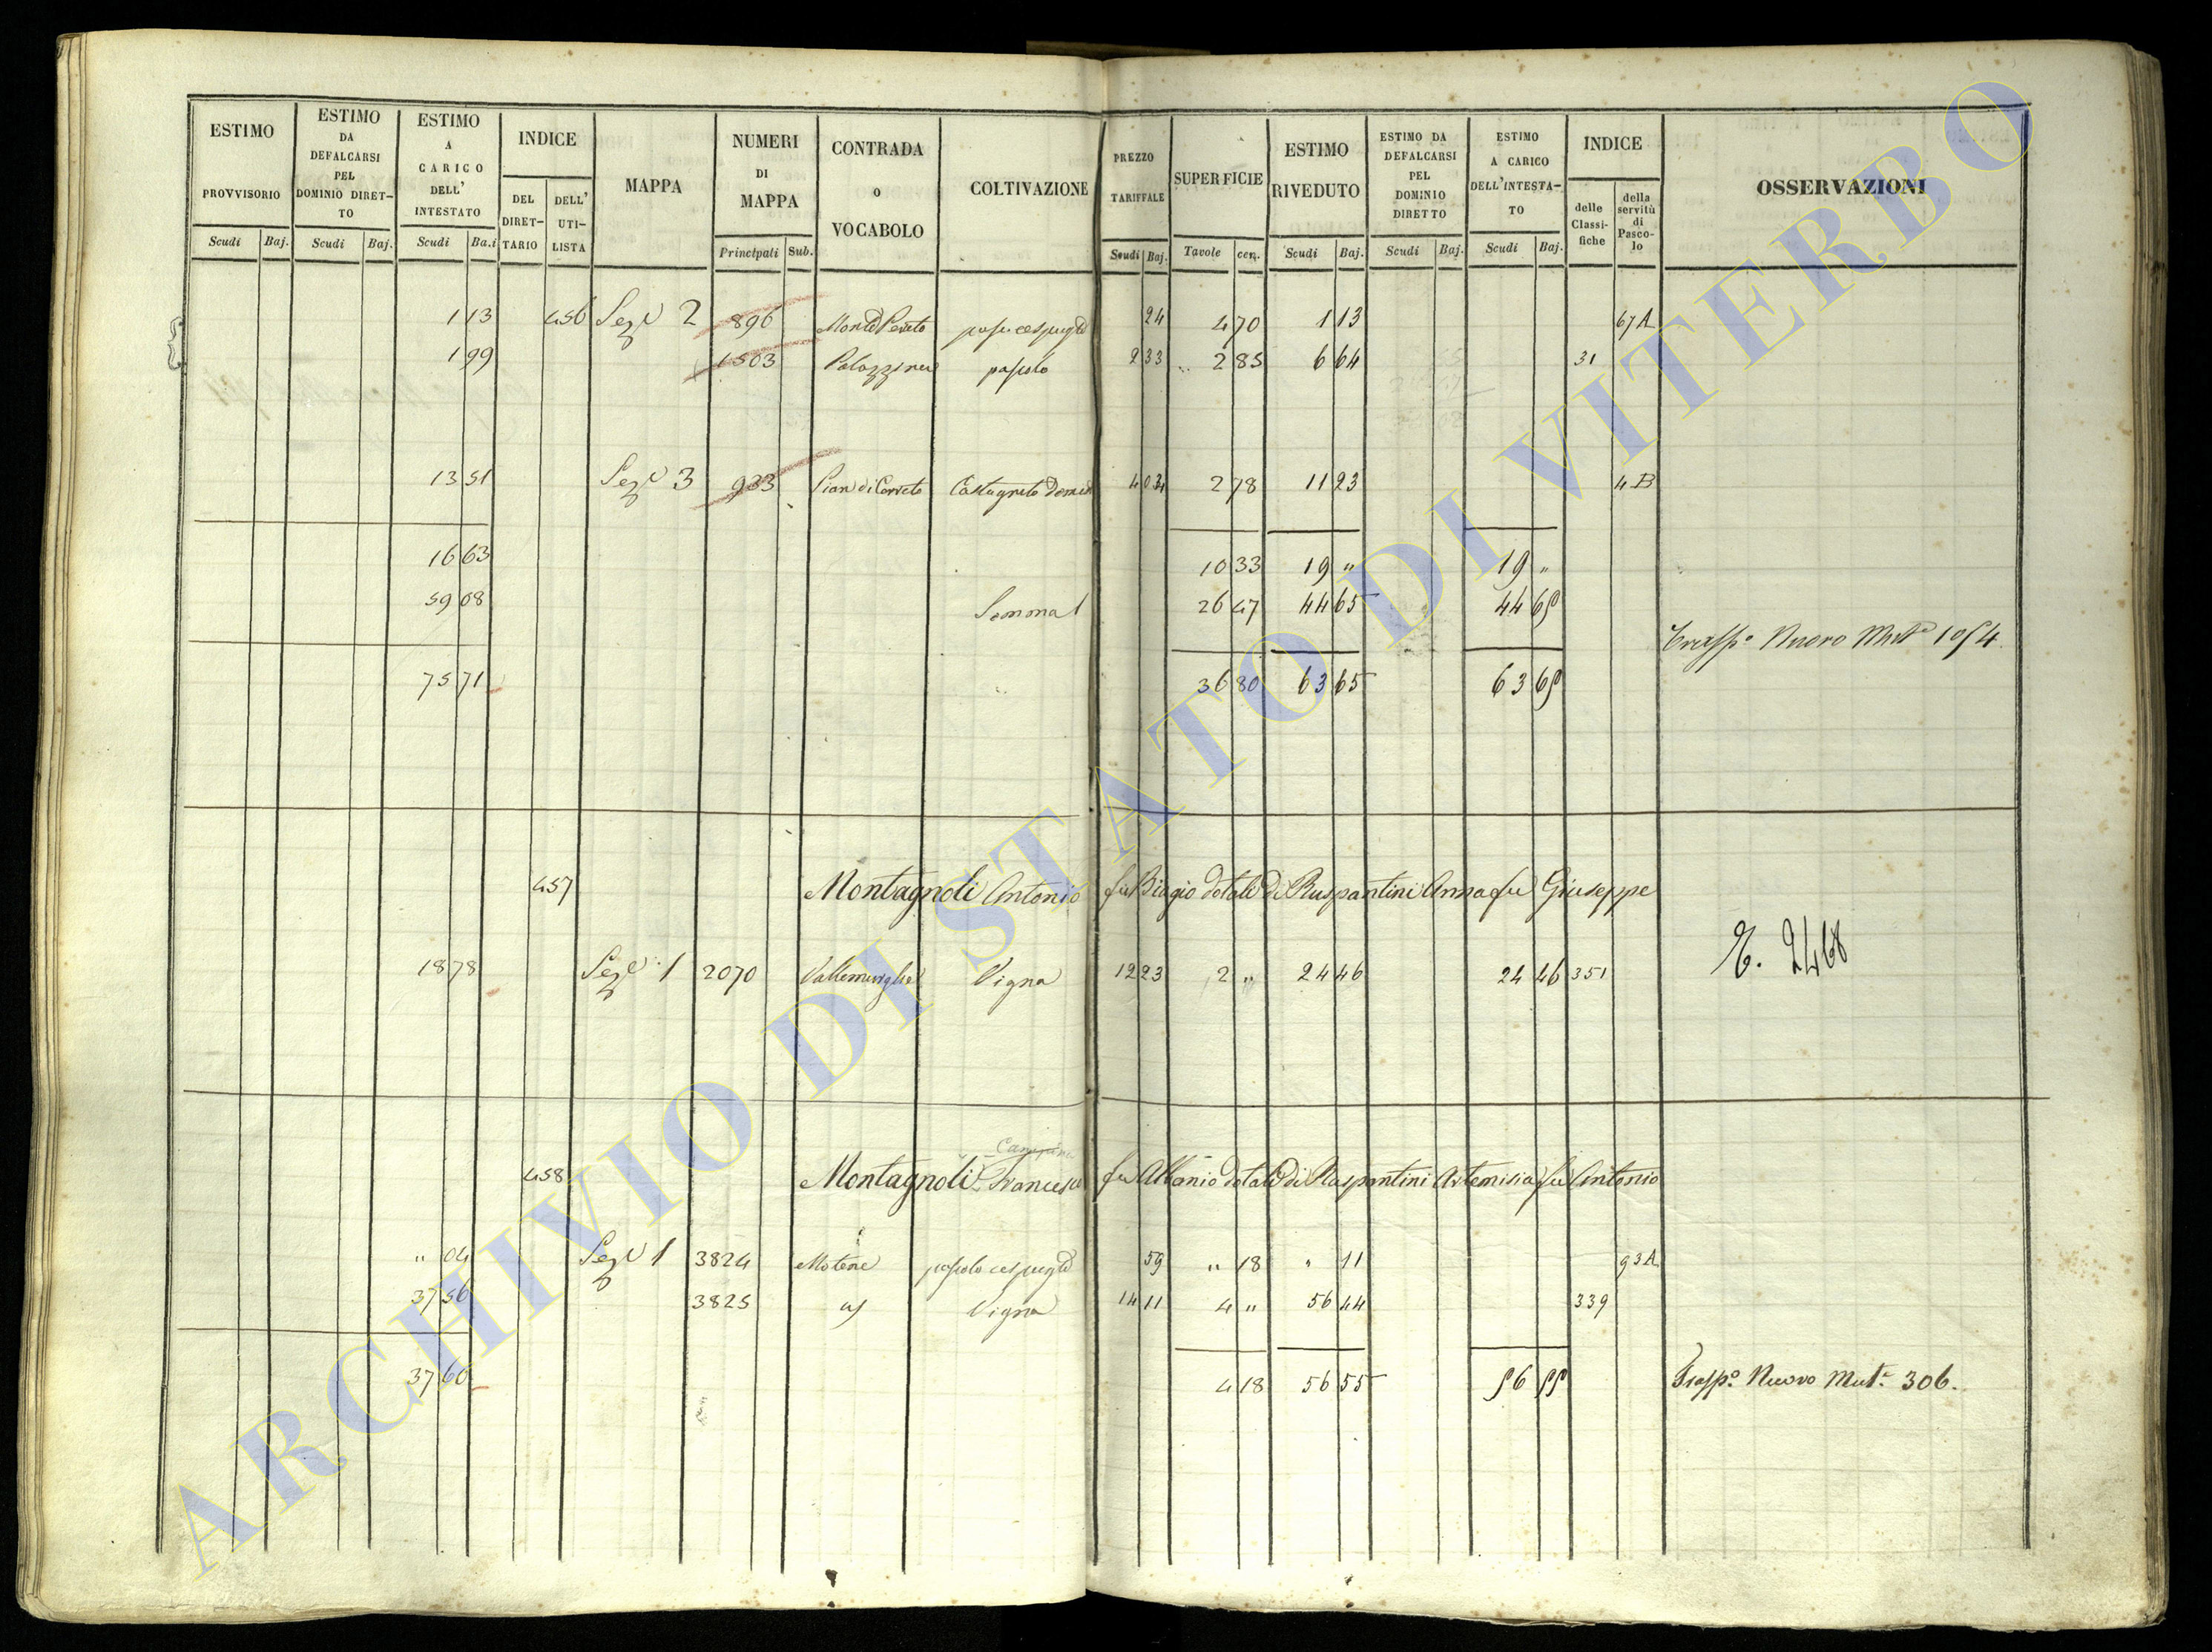 ESTIMO PROVVISORIO Scudi Baj.
ESTIMO DA DEFALCARSI PEL DOMINIO DIRETTO Scudi Baj.
ESTIMO A CARICO DELL' INTESTATO Scudi Ba.i
INDICE DEL DIRETTARIO DELL' UTILISTA
MAPPA
NUMERI DI MAPPA Principali Sub.
CONTRADA o VOCABOLO
COLTIVAZIONE
PREZZO TARIFFALE Scudi Baj.
SUPERFICIE Tavole cen.
ESTIMO RIVEDUTO Scudi Baj.
ESTIMO DA DEFALCARSI PEL DOMINIO DIRETTO Scudi Baj.
ESTIMO A CARICO DELL'INTESTATO Scudi Baj.
INDICE delle Classifiche della servitù di Pascolo
OSSERVAZIONI
1 13 456 Sez.e 2 896 24 4 70 1 13 67 A
1 99 1503 Palazzina pascolo 2 33 2 85 6 64 31
13 51 Sez.e 3 933 Pian di Cerreto Castagneto Domest 4 04 2 78 11 23 4 B
16 63 10 33 19 " 19 "
59 08 Somma 26 47 44 65 44 65
Trasp.o Nuovo Mut.e 1054
75 71 36 80 63 65 63 65
457 Montagnoli Antonio fu Biagio dotali di Ruspantini Anna fu Giuseppe
18 78 Sez.e 1 2070 Vigna 12 23 2 " 24 46 24 46 351 2468
458 Montagnoli Francesco fu Albanio dotali di Ruspantini Artemisia fu Antonio
" 04 Sez.e 1 3824 Motene pascolo cespugl.to 59 " 18 " 11 93 A
37 56 3825 Vigna 14 11 4 " 56 44 339
37 60 4 18 56 55 56 55 Trasp.o Nuovo Mut.e 306.
ARCHIVIO DI STATO DI VITERBO